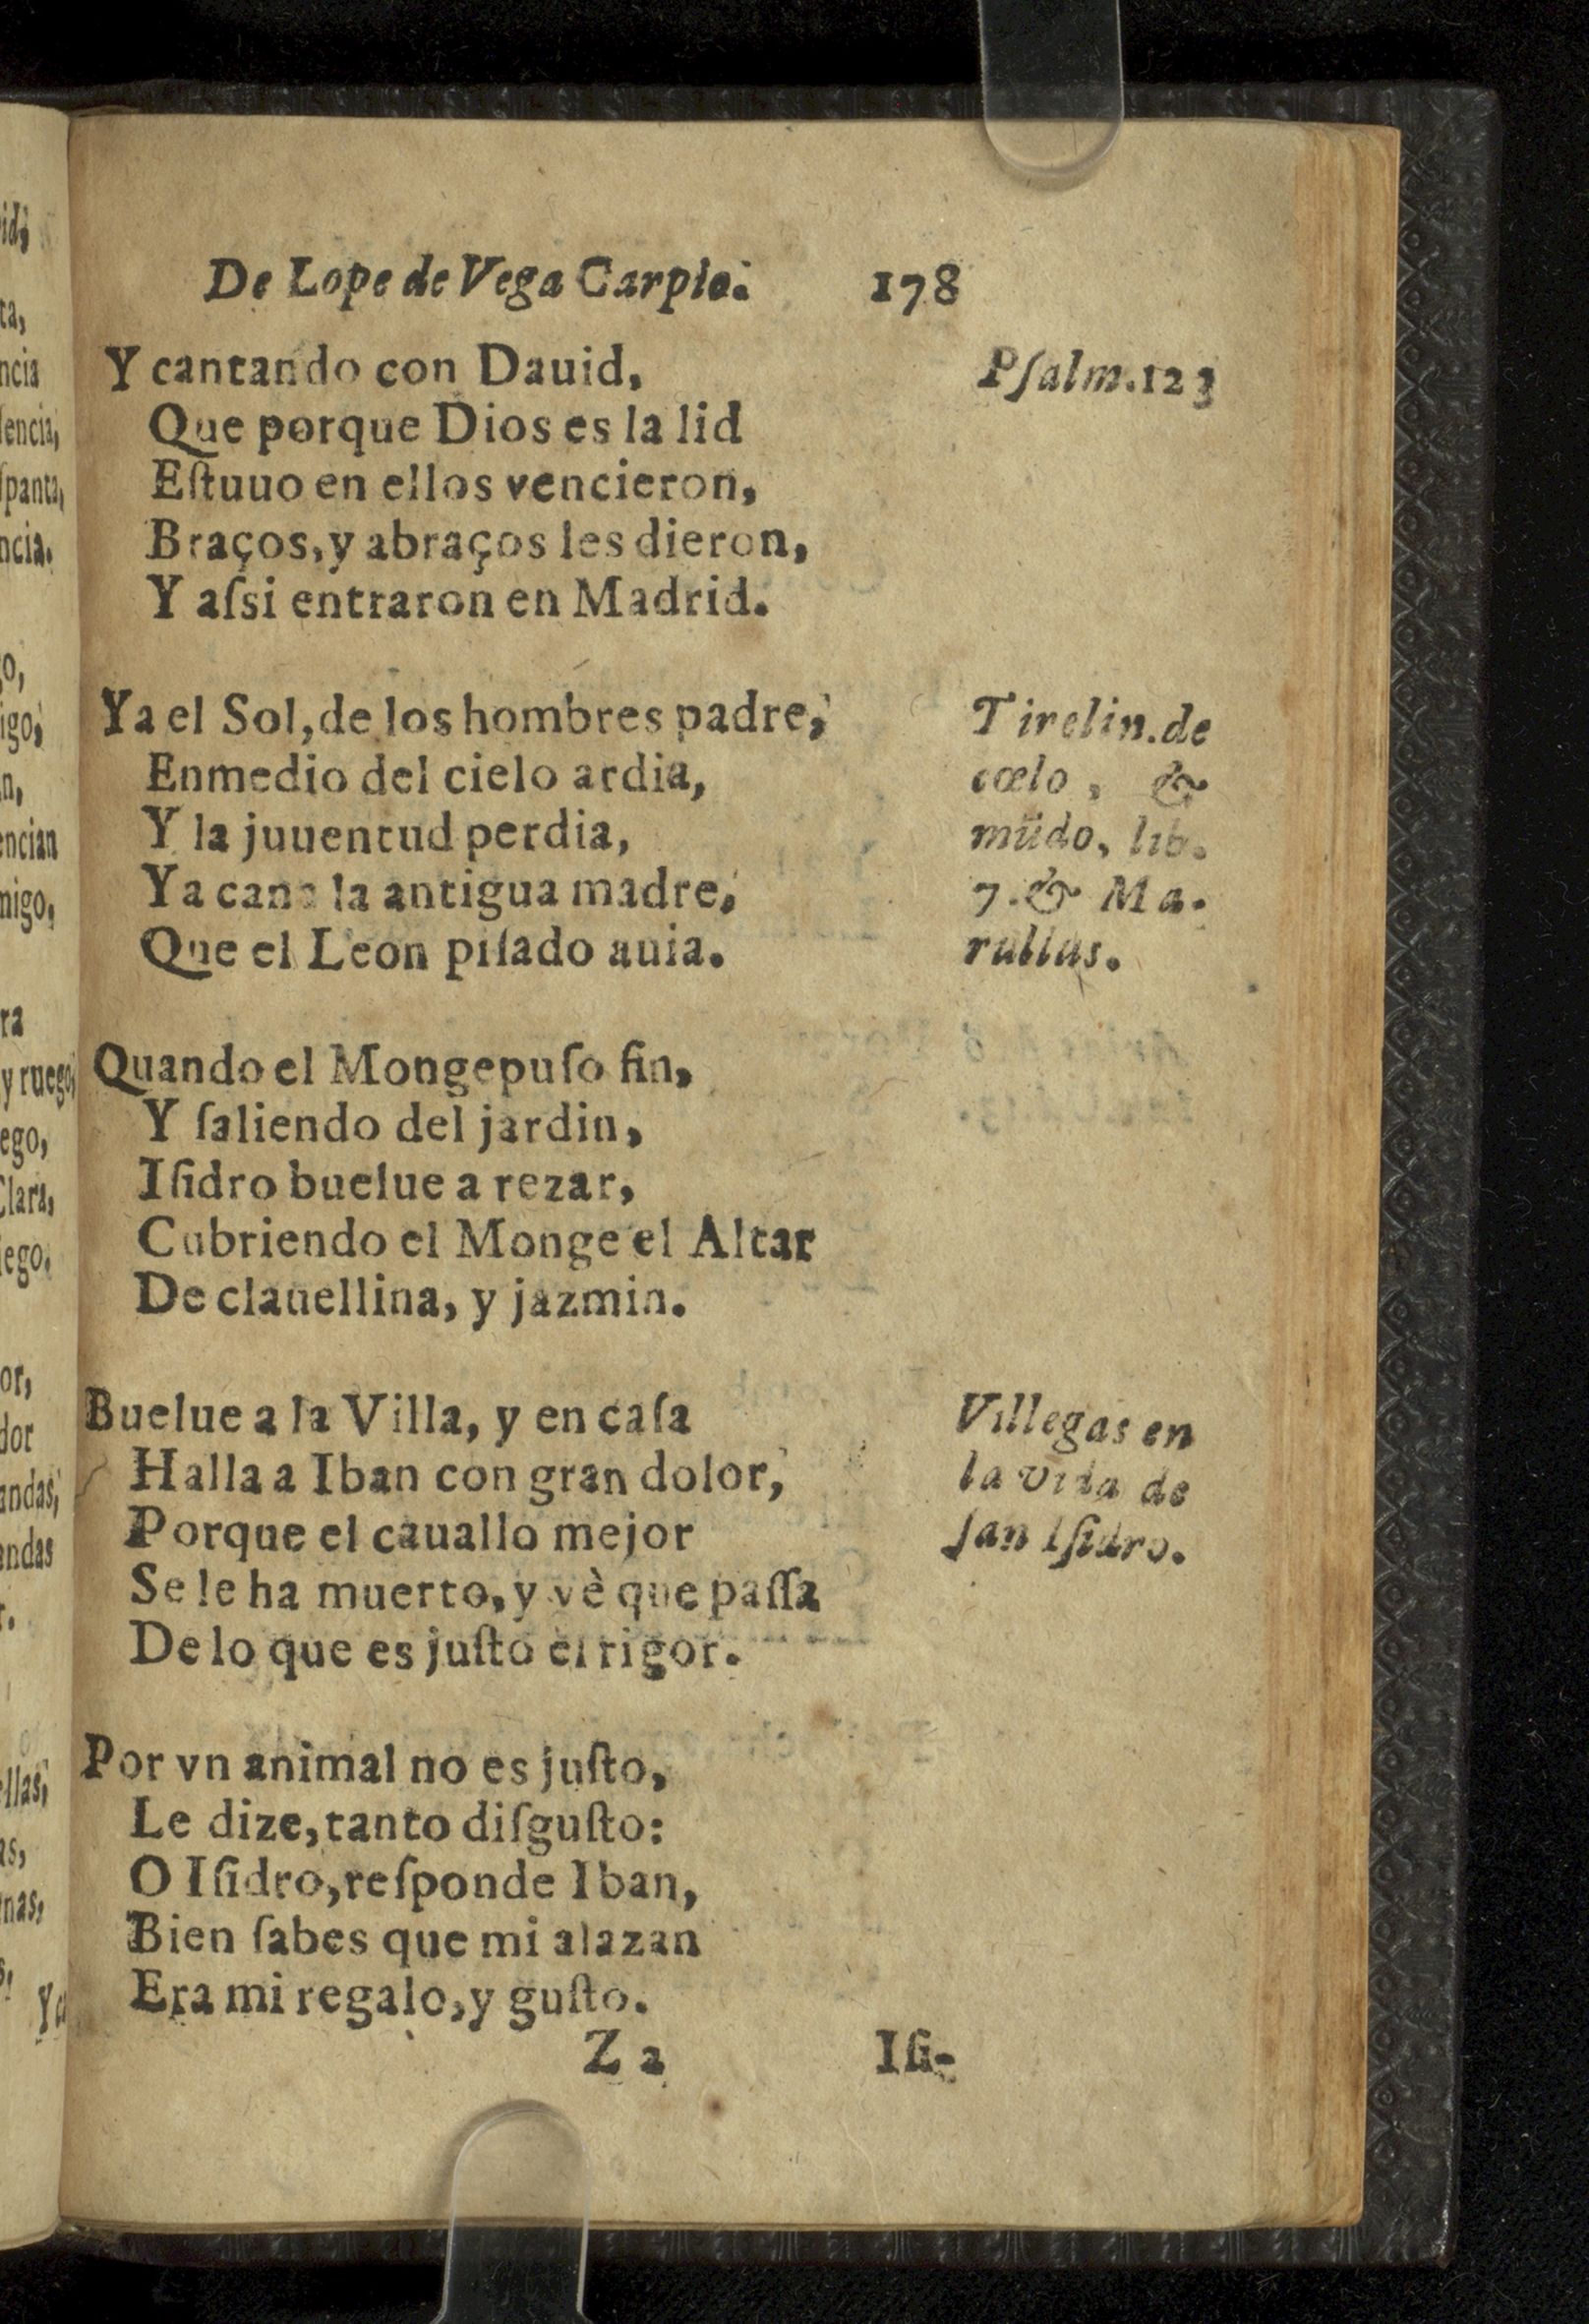 De Lope de Vega Carpio. 178
Y cantando con Dauid,
Psalm.123
Que porque Dios es la lid
Eſtuuo en ellos vencieron,
Braços, y abraços les dieron,
Y aſsi entraron en Madrid.
Ya el Sol, de los hombres padre,
Enmedio del cielo ardia,
Y la juuentud perdia,
Ya cana la antigua madre,
Que el Leon piſado auia.
Tirelin.de
cœlo, &
mũdo, lib.
7.& Ma.
rullus.
Quando el Monge puſo fin,
Y ſaliendo del jardin,
Iſidro buelue a rezar,
Cubriendo el Monge el Altar
De clauellina, y jazmin.
Buelue a la Villa, y en caſa
Halla a Iban con gran dolor,
Porque el cauallo mejor
Se le ha muerto, y vè que paſſa
De lo que es juſto el rigor.
Villegas en
la vida de
ſan Iſidro.
Por vn animal no es juſto,
Le dize, tanto diſguſto:
O Iſidro, reſponde Iban,
Bien ſabes que mi alazan
Era mi regalo, y guſto.
Z 2 Iſi-